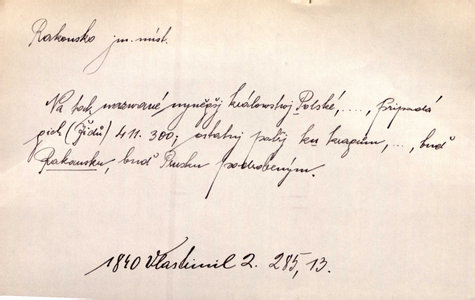 Rakousko jm. míst.
Na tak nazwané nyněgší králowstwj Polské, ...., připadá
gich (Židů) 411.300; ostatnj patřj ku kragům, ..., buď
Rakousku, buď Prusku podrobeným.
1840 Vlastimil 2. 285, 13.